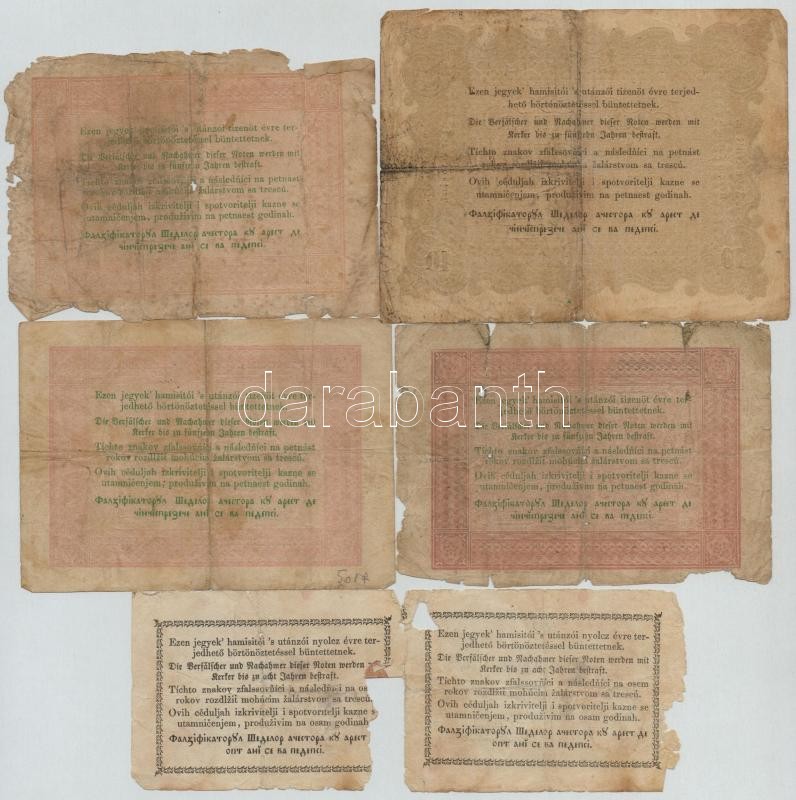 Ezen jegyek' hamisitói 's utánzói tizenöt évre ter-
jedhető börtönöztetéssel büntettetnek.
Die Verfälscher und Nachahmer dieser Noten werden mit
Kerker bis zu fünfzehn Jahren bestraft.
Tíchto znakov zfalssovňíci a následňíci na petnást
rokov žalárstvom sa trescú.
Ovih cêduljah izkrivitelji i spotvoritelji kazne se
utamničenjem, produživim na petnaest godinah.
Фалзіфікаторꙋл Шеделор ачестора кꙋ арест де
чінчіпрезече анї се ва педепсі.
Ezen jegyek' hamisitói 's utánzói tizenöt évre terjed-
hető börtönöztetéssel büntettetnek.
Die Verfälscher und Nachahmer dieser Noten werden mit
Kerker bis zu fünfzehn Jahren bestraft.
Tíchto znakov zfalssovňíci a následňíci na petnást
rokov žalárstvom sa trescú.
Ovih cêduljah izkrivitelji i spotvoritelji kazne se
utamničenjem, produživim na petnaest godinah.
Фалзіфікаторꙋл Шеделор ачестора кꙋ арест де
чінчіпрезече анї се ва педепсі.
10 10
darabanth
Ezen jegyek' hamisitói 's utánzói tizenöt évre ter-
jedhető börtönöztetéssel büntettetnek.
Die Verfälscher und Nachahmer dieser Noten werden mit
Kerker bis zu fünfzehn Jahren bestraft.
Tíchto znakov zfalssovňíci a následňíci na petnást
rokov rozdlžit mohúcim žalárstvom sa trescú.
Ovih cêduljah izkrivitelji i spotvoritelji kazne se
utamničenjem, produživim na petnaest godinah.
Фалзіфікаторꙋл Шеделор ачестора кꙋ арест де
чінчіпрезече анї се ва педепсі.
Ezen jegyek' hamisitói 's utánzói tizenöt évre ter-
jedhető börtönöztetéssel büntettetnek.
Die Verfälscher und Nachahmer dieser Noten werden mit
Kerker bis zu fünfzehn Jahren bestraft.
Tíchto znakov zfalssovňíci a následňíci na petnást
rokov rozdlžit mohúcim žalárstvom sa trescú.
Ovih cêduljah izkrivitelji i spotvoritelji kazne se
utamničenjem, produživim na petnaest godinah.
Фалзіфікаторꙋл Шеделор ачестора кꙋ арест де
чінчіпрезече анї се ва педепсі.
Ezen jegyek' hamisitói 's utánzói nyolcz évre ter-
jedhető börtönöztetéssel büntettetnek.
Die Verfälscher und Nachahmer dieser Noten werden
Kerker bis zu acht Jahren bestraft.
Tíchto znakov zfalssovňíci a následňíci na osem
rokov rozdlžit mohúcim žalárstvom sa trescú.
Ovih cêduljah izkrivitelji i spotvoritelji kazne se
utamničenjem, produživim na osam godinah.
Фалзіфікаторꙋл Шеделор ачестора кꙋ арест де
опт анї се ва педепсі.
Ezen jegyek' hamisitói 's utánzói nyolcz évre ter-
jedhető börtönöztetéssel büntettetnek.
Die Verfälscher und Nachahmer dieser Noten werden mit
Kerker bis zu acht Jahren bestraft.
Tíchto znakov zfalssovňíci a následňíci na osem
rokov rozdlžit mohúcim žalárstvom sa trescú.
Ovih cêduljah izkrivitelji i spotvoritelji kazne se
utamničenjem, produživim na osam godinah.
Фалзіфікаторꙋл Шеделор ачестора кꙋ арест де
опт анї се ва педепсі.